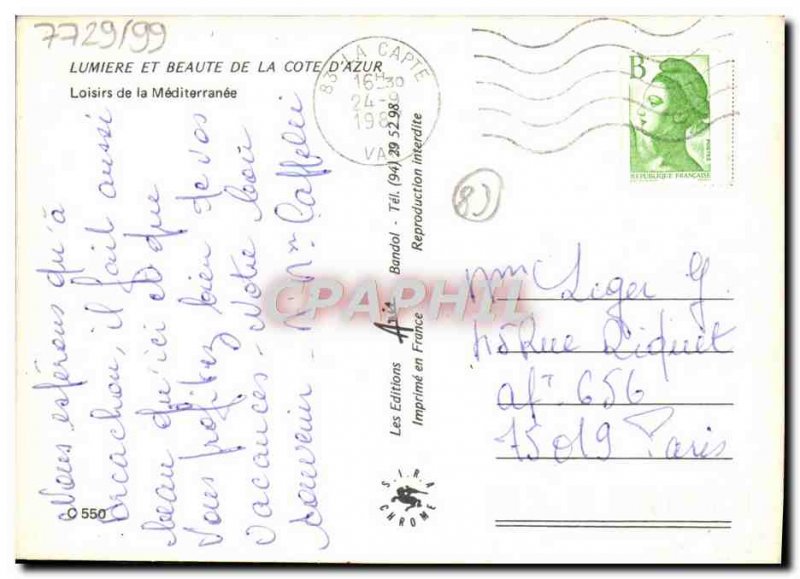 7729/99
LUMIERE ET BEAUTE DE LA COTE D'AZUR
Loisirs de la Méditerranée
Nous espérons qu'à
Arcachon, il fait aussi
beau qu'ici et que
vous profitez bien de vos
vacances - Notre bon
souvenir - M. Mme
C 550
Les Editions Aris Bandol - Tél. (94) 29 52.98
Imprimé en France Reproduction interdite
SIRA
CHROME
83 LA CAPTE
16H30
24-8
198
VAR
B
POSTES
REPUBLIQUE FRANÇAISE
CPAPHIL
Mm Leger G.
Rue Riquet
apt 656
75019 Paris